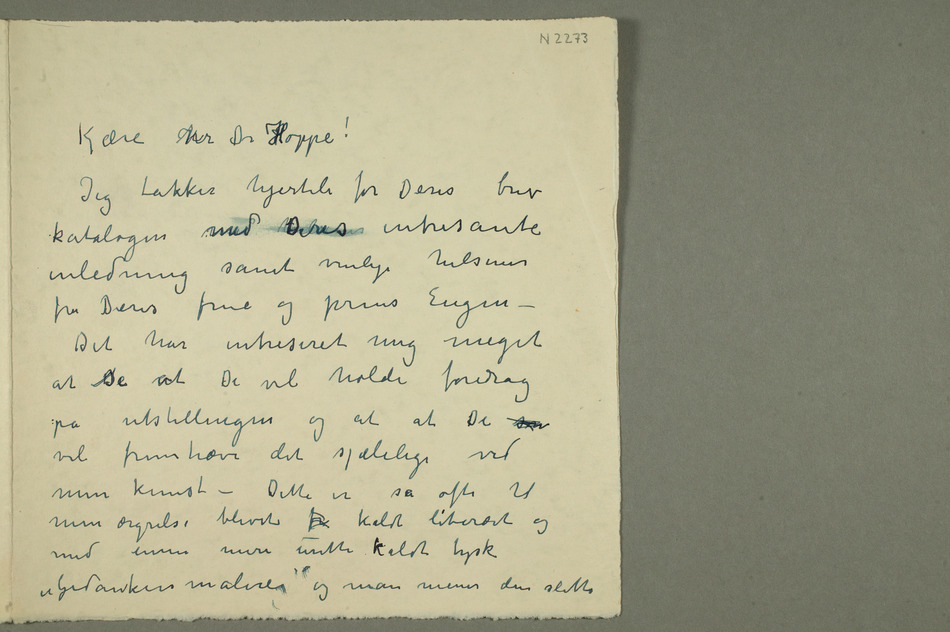 N 2273
Kjære Herr Dr Hoppe!
Jeg takker hjerteli for Deres brev
katalogen med Deres intresante
inledning samt venlige hilsener
fra Deres frue og prins Eugen –
Det har intreseret mig meget
at De at De vil holde foredrag
på utstillingen og at at De
vil fremhæve det sjælelige ved
min kunst – Dette er så ofte til
min ærgrelse blevet kaldt literært og
med ennu mere unette kaldt tysk
„Gedankenmalerei“ og man mener den slette